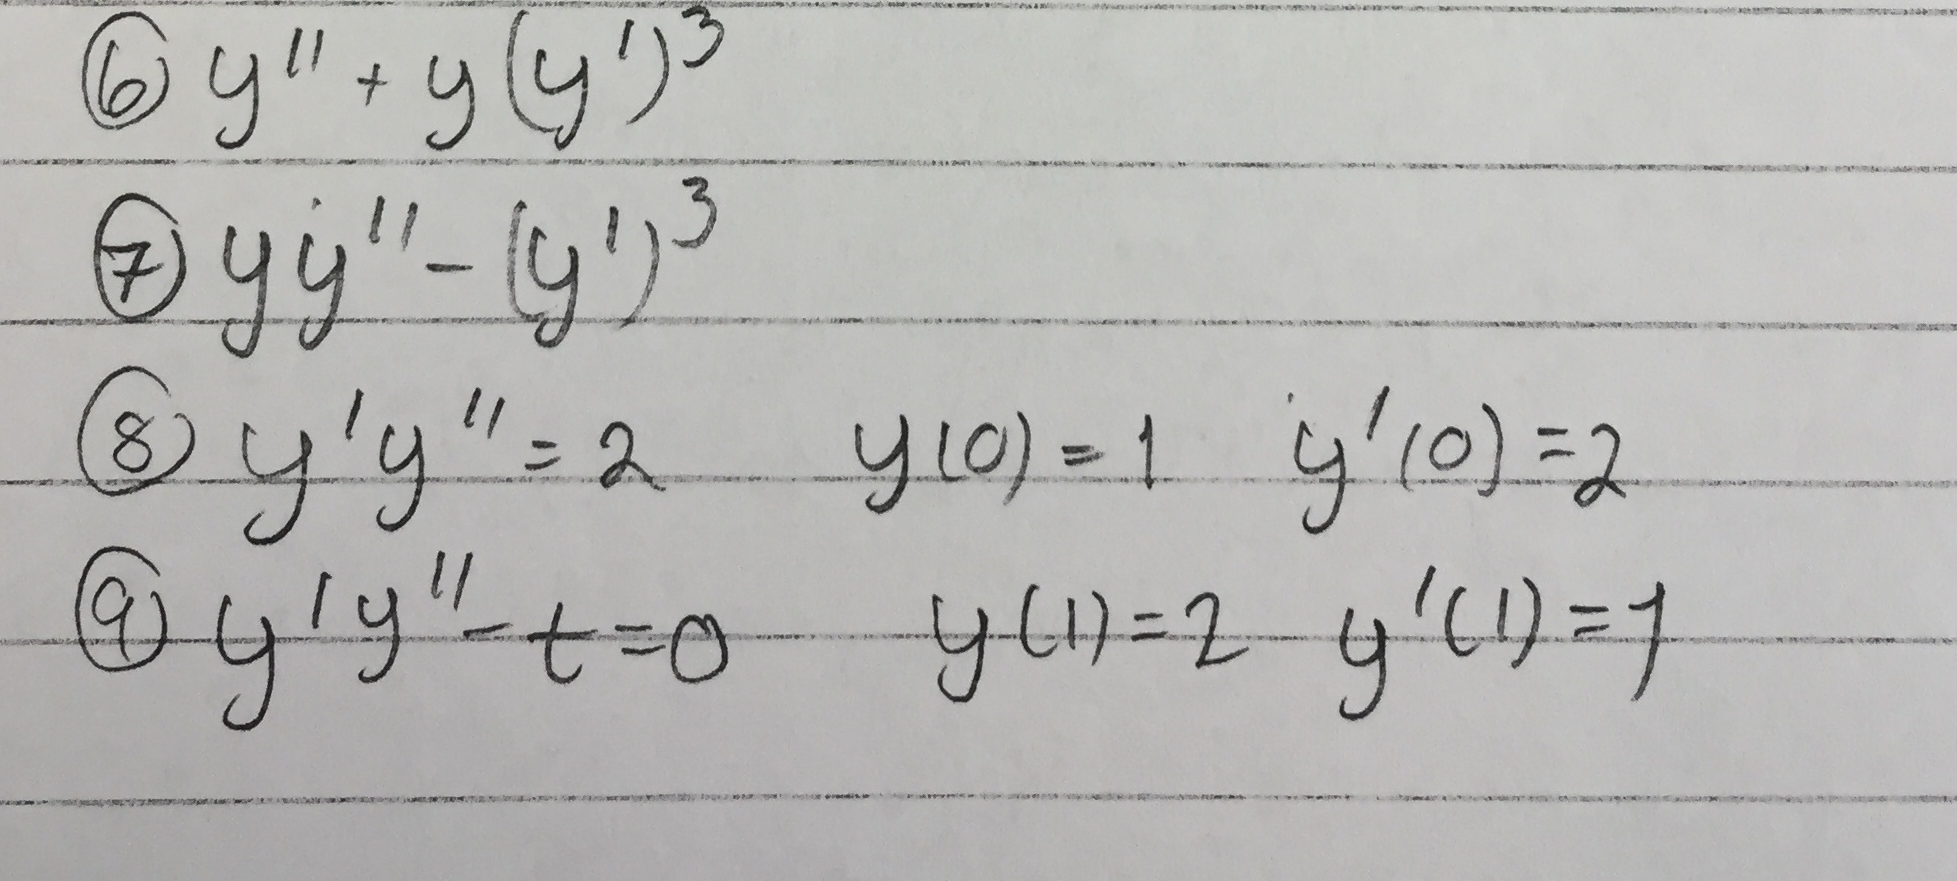 ⑥ y'' + y(y')³
⑦ yy'' - (y')³
⑧ y'y'' = 2 y(0) = 1 y'(0) = 2
⑨ y'y'' - t = 0 y(1) = 2 y'(1) = 1